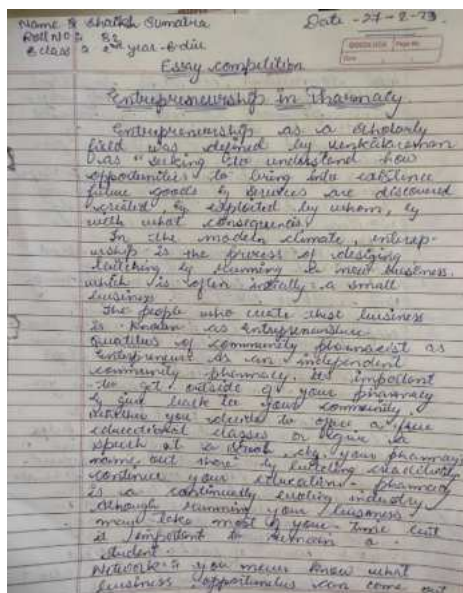 Name : Shaikh Sumaira Date - 27-2-23
Roll No : 82
class : 2nd year-B-div
Essay competition
Entrepreneurship In Pharmacy
Entrepreneurship as a scholarly
field was defined by Venkataraman
as "seeking to understand how
opportunities to bring into existence
future goods & services are discovered
created & exploited by whom, &
with what consequences
In the modern climate, entrep-
urship is the process of designing
& running a new business,
which is often initially a small
business
The people who create that business
is known as Entrepreneurs
Qualities of community pharmacist as
Entrepreneur As an independent
community pharmacy, its important
to get outside of your pharmacy
& give back to your community.
Whether you decide to offer a free
educational classes or give a
speech at a your pharmacy's
name out there by building creditivity.
continue your education - pharmacy
is a continually evoling industry
Although running your business
may take most of your time but
is important to remain a
student.
Network : you never know what
business opportunities can come out